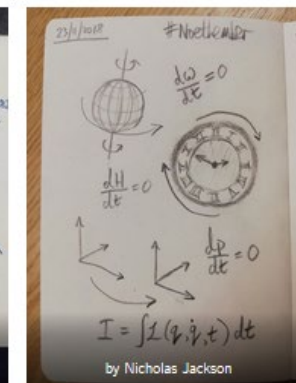 23/11/2018
#Noethember
dω/dt = 0
dH/dt = 0
dp/dt = 0
I = ∫L(q, q̇, t) dt
by Nicholas Jackson